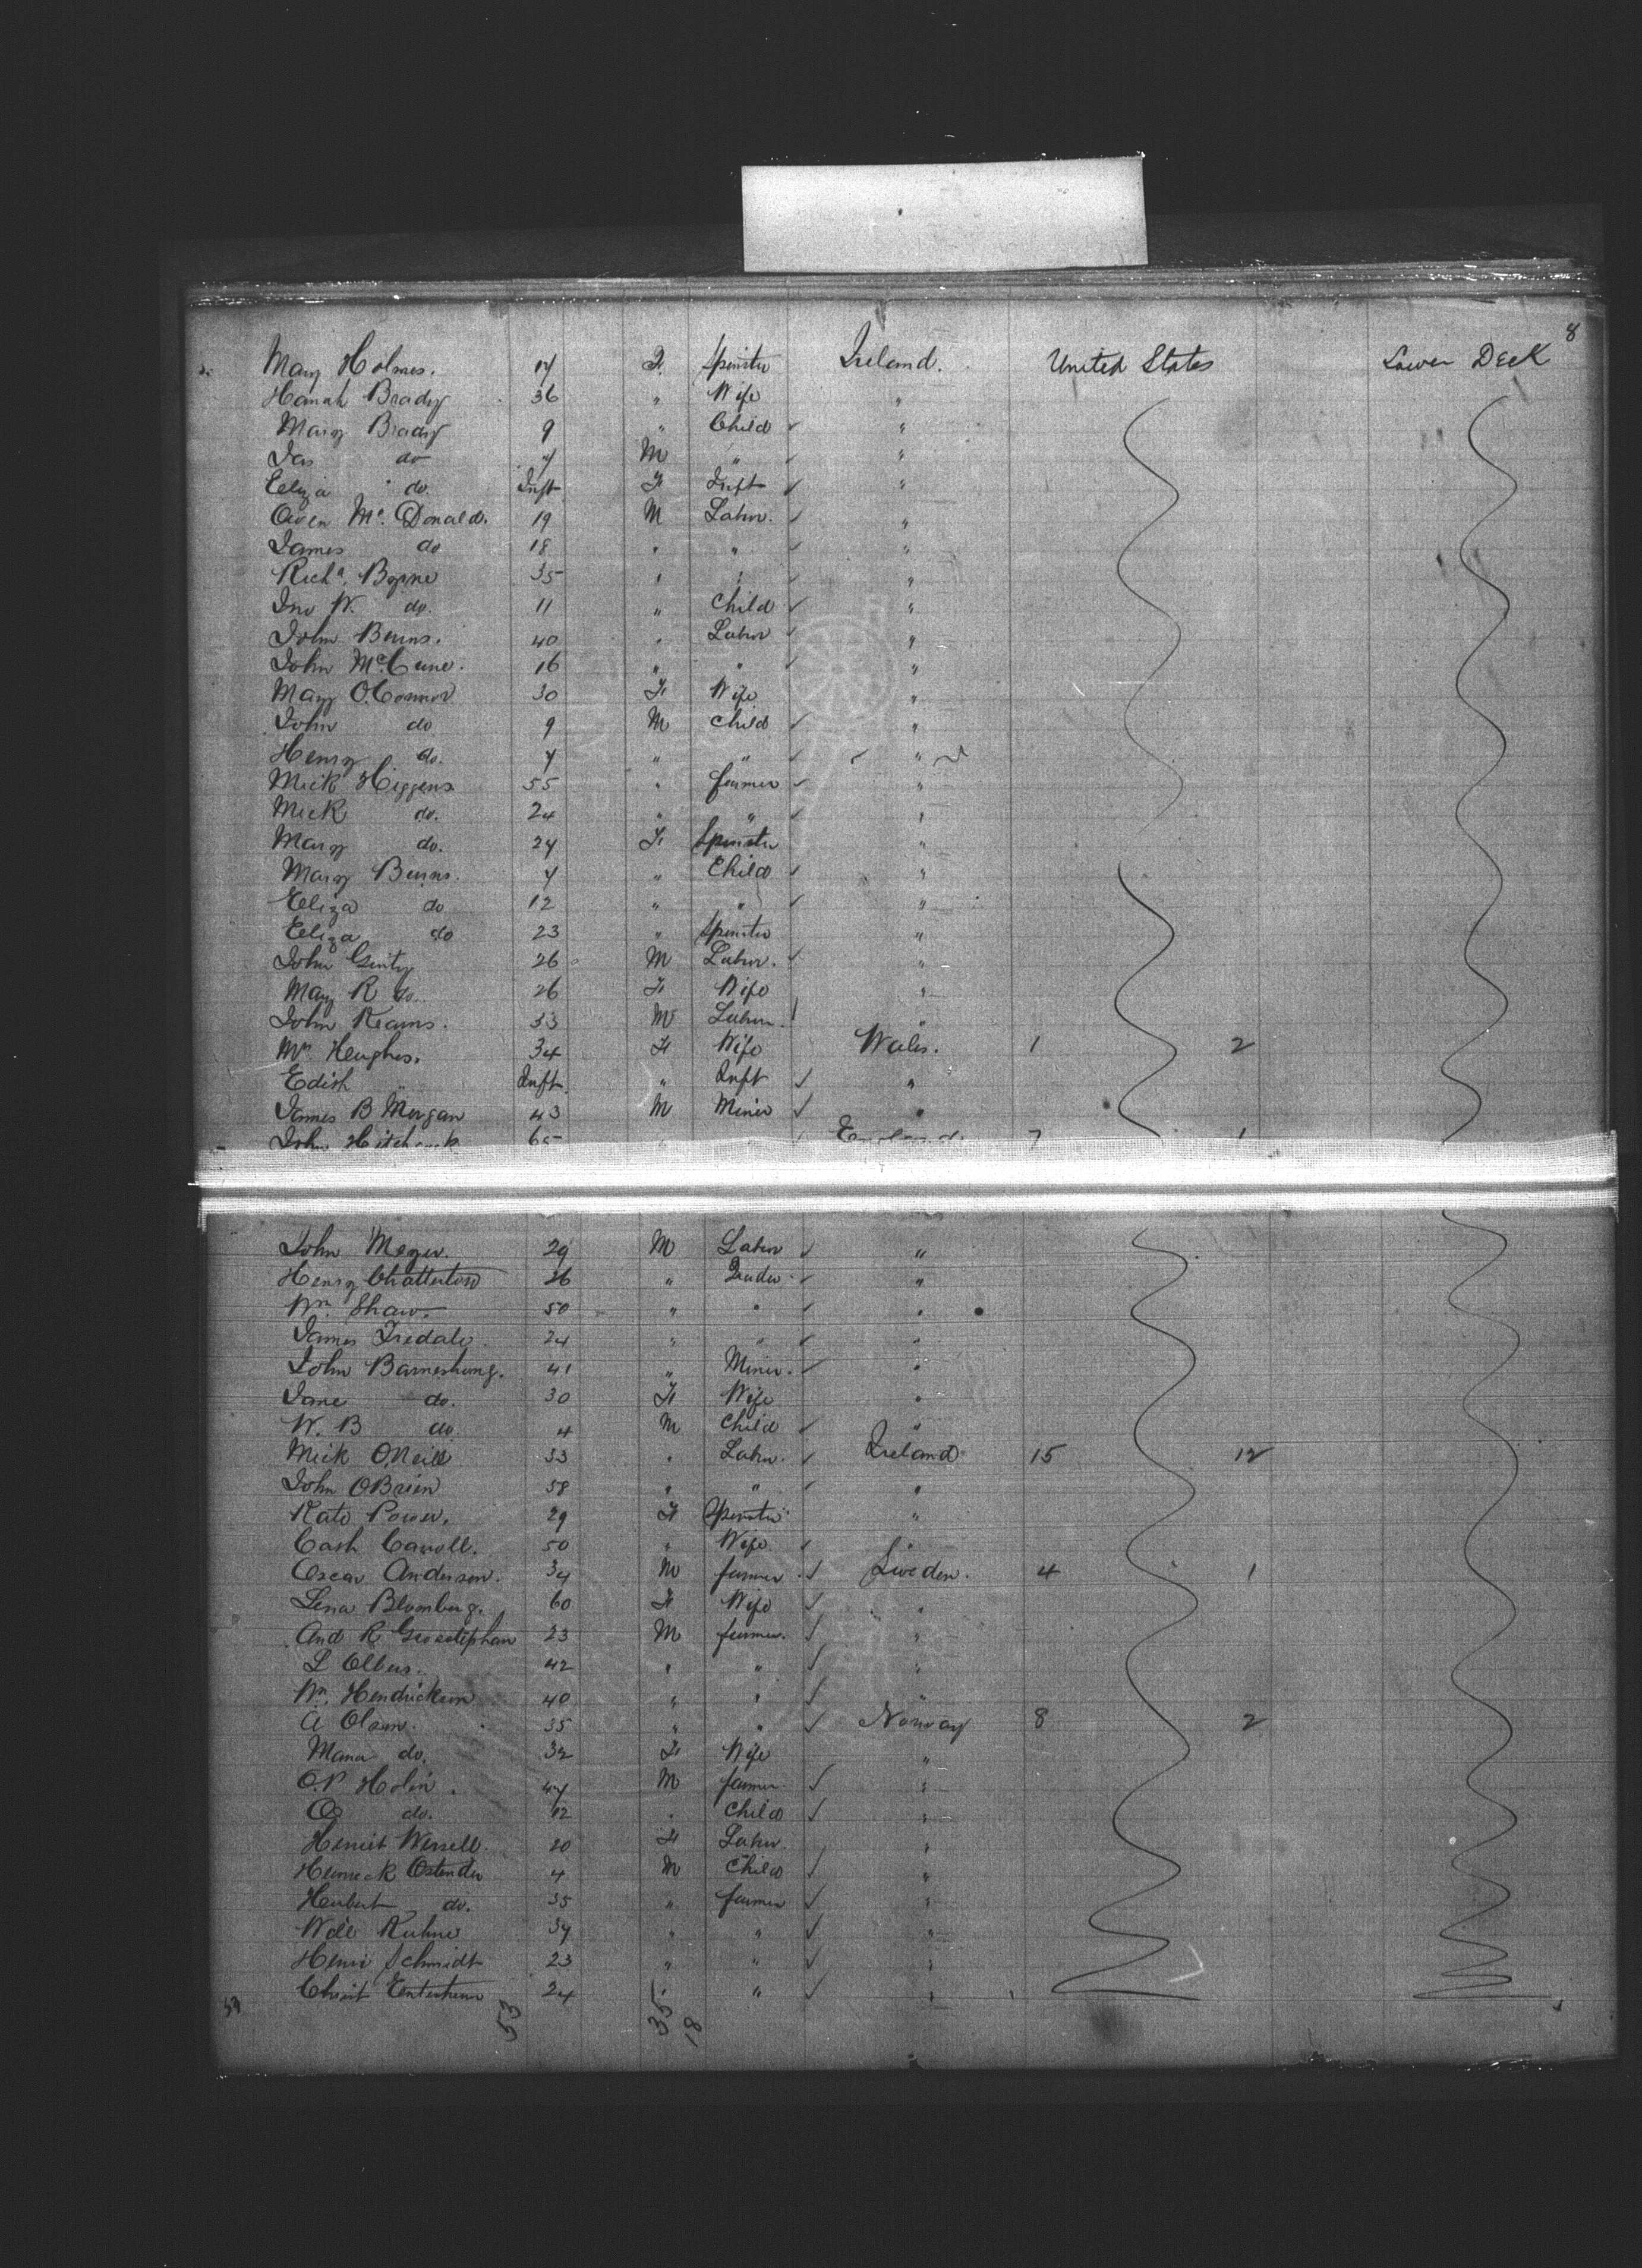 8
Mary Holmes. 17 F. Spinster Ireland. United States Lower Deck
Hanah Brady 36 " Wife "
Mary Brady 9 " Child "
Jas do 7 M " "
Eliza do Inft F Inft "
Owen Mc. Donald. 19 M Labor. "
James do 18 " " "
Richd. Byrne 35 " " "
Jno W. do. 11 " Child "
John Burns. 40 " Labor "
John McCune. 16 " " "
Mary O.Connor 30 F Wife "
John do 9 M Child "
Henry do. 7 " " "
Mick Higgens 55 " farmer "
Mick do. 24 " " "
Mary do. 27 F Spinster "
Mary Burns. 7 " Child "
Eliza do 12 " " "
Eliza do 23 " Spinster "
John Ginty 26 M Labor. "
Mary R do. 26 F Wife "
John Keams. 33 M Labor. "
Mrs. Heughes. 34 F Wife Wales. 1 2
Edith " Inft. " Inft "
James B Morgan 43 M Miner "
John Hitchcock 65 England. 7 1
John Meyer. 29 M Labor "
Henry Chatterton 26 " "
Wm. Shaw. 50 " " "
James Iredale. 24 " " "
John 41 " Miner. "
Jane do. 30 F Wife "
W. B do 4 M Child "
Mick O.Neill 33 " Labor. Ireland 15 12
John OBrien 58 " " "
Kate Power. 29 F Spinster "
Cath Caroll. 50 " Wife
Oscar Anderson. 34 M farmer Sweden. 4 1
Lena Blomberg. 60 F Wife "
And R 23 M farmer. "
L 42 " " "
Wm. Hendrickson 40 " " "
A Olsen. 35 " " Norway 8 2
Maria do. 32 F Wife "
O.P Holin. 47 M farmer. "
O do. 12 " Child "
20 F Labor. "
4 M Child "
Herbert do. 35 " farmer "
Kuhne 37 " " "
Henri Schmidt 23 " " "
Christ 24 " "
53 53 35 18